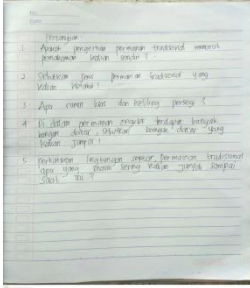 Pertanyaan
1. Apakah pengertian permainan tradisional menurut
pemahaman kalian sendiri ?
2. Sebutkan jenis permainan tradisional yang
kalian ketahui !
3. Apa rumus luas dan keliling persegi ?
4. Di dalam permainan engklek terdapat banyak
bangun datar sebutkan bangun datar yang
kalian jumpai !
5. Perhatikan lingkungan sekitar, permainan tradisional
apa yang masih sering kalian jumpai sampai
saat ini ?